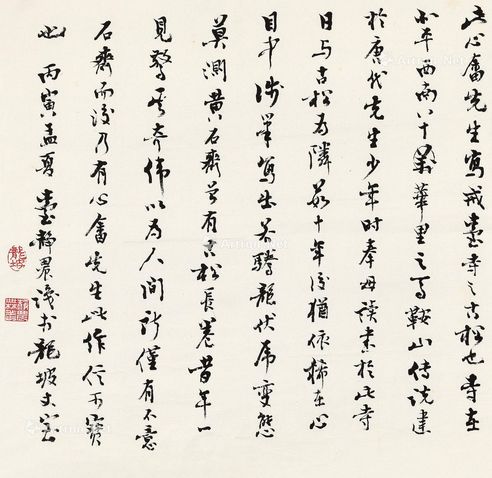 此心畬先生寫戒臺寺之古松也寺在
北平西南八十里華里之馬鞍山傳説建
於唐代先生少年時奉母讀書於此寺
日与古松為隣數十年後猶依稀在心
目中涉筆寫出矣驕龍伏虎變態
莫測黄石齋曾有古松長卷昔年一
見驚其奇偉以為人間所僅有不意
石齋而後乃有心畬先生此作信可寶
也 丙寅孟夏臺静農識於龍坡丈室